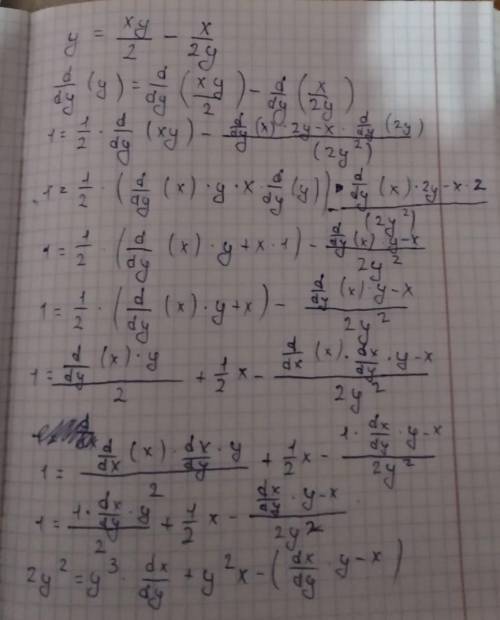 y = xy/2 - x/2y
d/dy (y) = d/dy (xy/2) - d/dy (x/2y)
1 = 1/2 · d/dy (xy) - (d/dy (x) · 2y - x · d/dy (2y))/(2y²)
1 = 1/2 · (d/dy (x) · y · x · d/dy (y)) - (d/dy (x) · 2y - x · 2)/(2y²)
1 = 1/2 · (d/dy (x) · y + x · 1) - (d/dy (x) · y - x)/2y²
1 = 1/2 · (d/dy (x) · y + x) - (d/dy (x) · y - x)/2y²
1 = (d/dy (x) · y)/2 + 1/2 x - (d/dx (x) · dx/dy · y - x)/2y²
1 = (d/dx (x) · dx/dy · y)/2 + 1/2 x - (1 · dx/dy · y - x)/2y²
1 = (1 · dx/dy · y)/2 + 1/2 x - (dx/dy · y - x)/2y²
2y² = y³ · dx/dy + y²x - (dx/dy · y - x)